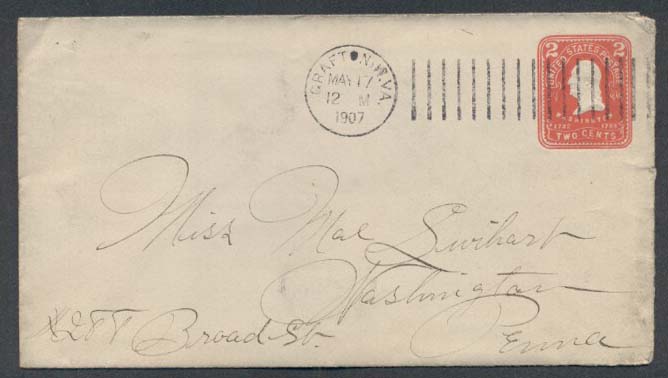 GRAFTON, W.VA.
MAY 17
12 M
1907
2 2
UNITED STATES POSTAGE
WASHINGTON
TWO CENTS
Miss Mae Swihart
Washington
Broad St. Penna